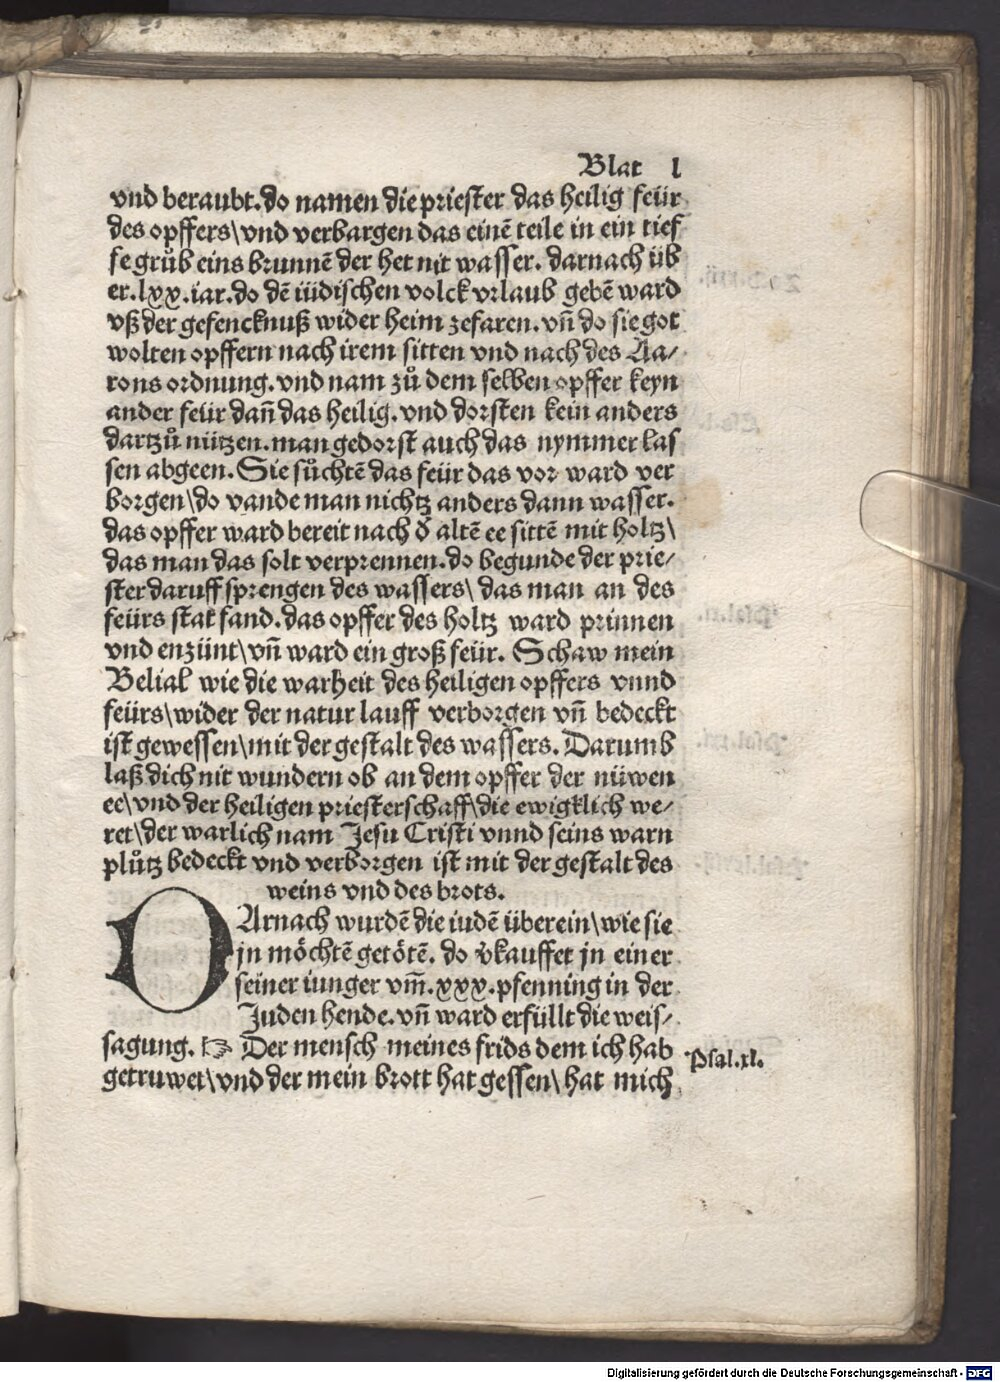 Blat l
vnd beraubt. do namen die priester das heilig feür
des opffers\vnd verbargen das einē teile in ein tief
fe grůb eins brunnē der het nit wasser. darnach üb
er.lxx.iar. do dē iüdischen volck vrlaub gebē ward
vß der gefencknuß wider heim zefaren. vn̄ do sie got
wolten opffern nach irem sitten vnd nach des Aa/
rons ordnung. vnd nam zů dem selben opffer keyn
ander feür dan̄ das heilig. vnd dorsten kein anders
dartzů nützen. man gedorst auch das nymmer las
sen abgeen. Sie sůchtē das feür das vor ward ver
borgen\do vande man nichtz anders dann wasser.
das opffer ward bereit nach d̄ altē ee sittē mit holtz\
das man das solt verprennen. do begunde der prie/
ster daruff sprengen des wassers\ das man an des
feürs stat fand. das opffer des holtz ward prinnen
vnd enzünt\vn̄ ward ein groß feür. Schaw mein
Belial wie die warheit des heiligen opffers vnnd
feürs\wider der natur lauff verborgen vn̄ bedeckt
ist gewessen\mit der gestalt des wassers. Darumb
laß dich nit wundern ob an dem opffer der nüwen
ee\vnd der heiligen priesterschaff\die ewigklich we/
ret\der warlich nam Jesu Cristi vnnd seins warn
plůtz bedeckt vnd verborgen ist mit der gestalt des
weins vnd des brots.
DArnach wurdē die iudē überein\wie sie
jn möchtē getötē. do v̄kauffet jn einer
seiner iunger vm̄.xxx.pfenning in der
Juden hende. vn̄ ward erfüllt die weis/
sagung. ☞ Der mensch meines frids dem ich hab
getruwet\vnd der mein brott hat gessen\hat mich
Psal.xl.
Digitalisierung gefördert durch die Deutsche Forschungsgemeinschaft - DFG